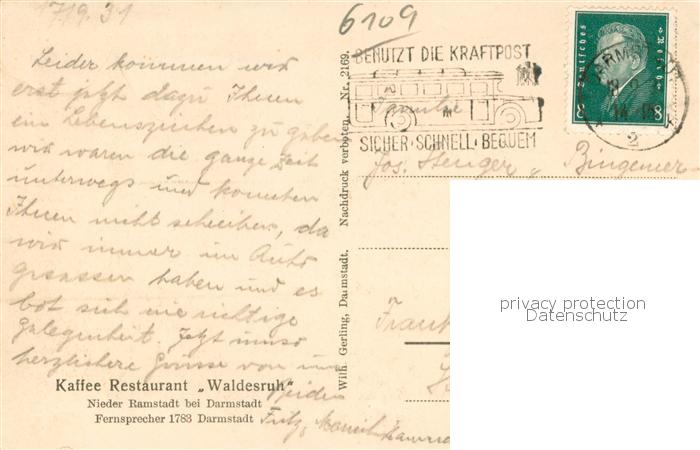 17/9.31
Leider kommen wir
erst jetzt dazu Ihnen
ein Lebenszeichen zu geben
wir waren die ganze Zeit
unterwegs und konnten
Ihnen nicht schreiben, da
wir immer im Auto
gesessen haben und es
bot sich nie richtige
Gelegenheit. Jetzt umso
herzlichere Grüsse von uns
beiden
Fritz,
Kaffee Restaurant „Waldesruh“
Nieder Ramstadt bei Darmstadt
Fernsprecher 1783 Darmstadt
Wilh. Gerling, Darmstadt. Nachdruck verboten. Nr. 2169.
6109
BENUTZT DIE KRAFTPOST
SICHER·SCHNELL·BEQUEM
Deutsches Reich
8 8
2
Familie
Jos. Stenger Bingemer
Frank
privacy protection
Datenschutz